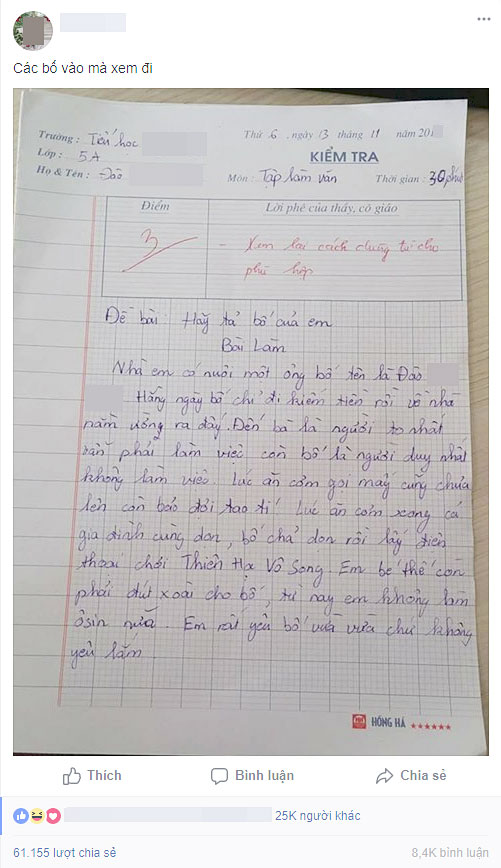 Các bố vào mà xem đi
Trường : Tiểu học
Thứ 6, ngày 13 tháng 11 năm 201
Lớp : 5A
KIỂM TRA
Họ & Tên : Đào
Môn : Tập làm văn
Thời gian : 30 phút
Điểm
Lời phê của thầy, cô giáo
3
- Xem lại cách dùng từ cho
phù hợp
Đề bài : Hãy tả bố của em
Bài Làm
Nhà em có nuôi một ông bố tên là Đào
Hằng ngày bố chỉ đi kiếm tiền rồi về nhà
nằm ưỡng ra đấy. Đến bà là người to nhất
vẫn phải làm việc còn bố là người duy nhất
không làm việc. Lúc ăn cơm gọi mấy cũng chưa
lên còn bảo đợi tao tí. Lúc ăn cơm xong cả
gia đình cùng dọn, bố chả dọn rồi lấy điện
thoại chơi Thiên Hạ Vô Song. Em bé thế còn
phải đút xoài cho bố, từ nay em không làm
ôsin nữa. Em rất yêu bố vừa vừa chứ không
yêu lắm
HỒNG HÀ
Thích
Bình luận
Chia sẻ
25K người khác
61.155 lượt chia sẻ
8,4K bình luận